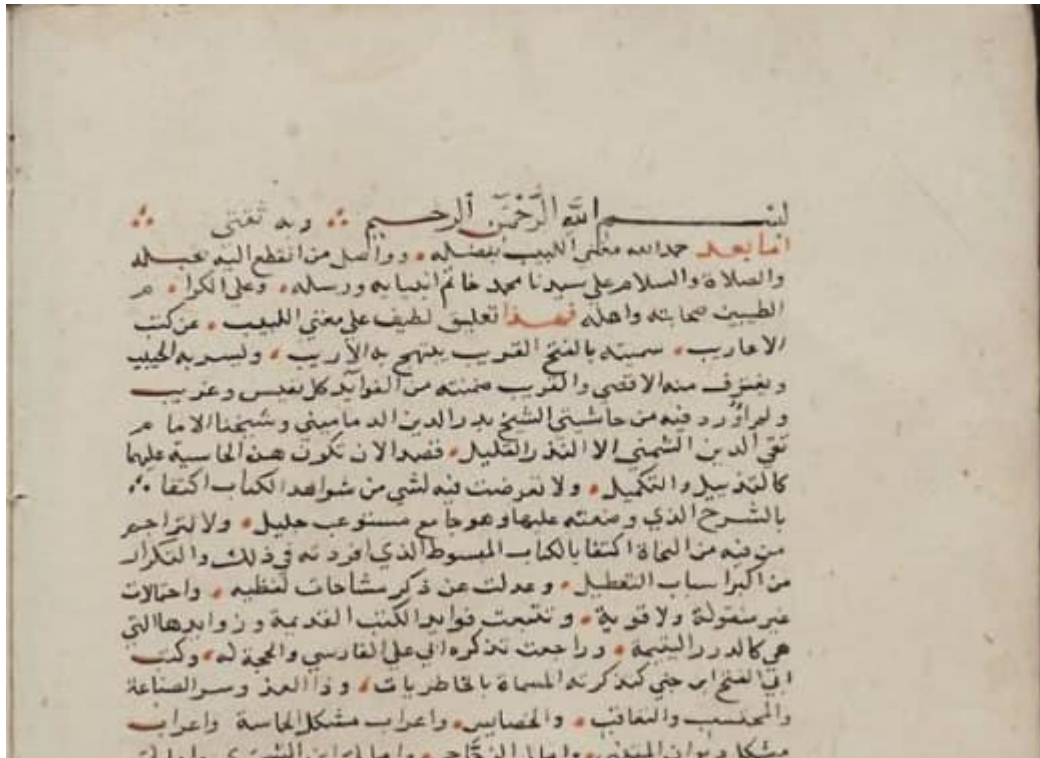 بسم الله الرحمن الرحيم وبه ثقتي
اما بعد حمدا لله مغني اللبيب بفضله وواصل من انقطع اليه بحبله
والصلاة والسلام على سيدنا محمد خاتم انبيايه ورسله وعلى الكرام
الطيبين صحابته واهله فهذا تعليق لطيف على مغني اللبيب عن كتب
الاعاريب سميته بالفتح القريب يبتهج به الاريب ويسر به الحبيب
ويغترف منه الاقصى والقريب ضمنته من الفوايد كل نفيس وغريب
ولم اورد فيه من حاشيتي الشيخ بدر الدين الدماميني وشيخنا الامام
تقي الدين الشمني الا النذر القليل فصد الان تكون هذه الحاسية عليها
كالتذييل والتكميل ولا تعرضت فيه لشي من شواهد الكتاب اكتفا
بالشرح الذي وضعته عليها وهو جامع مستوعب جليل ولا لتراجم
من فيه من النحاة اكتفا بالكتاب المبسوط الذي افردته في ذلك والتكرار
من اكبر اسباب التعطيل وعدلت عن ذكر مشاحات لفظيه واحتمالات
غير منقولة ولا قوية وتتبعت فوايد الكتب القديمة وزوايدها التي
هي كالدرر اليتيمة وراجعت تذكره ابي علي الفارسي والحجة له وكتب
ابي الفتح ابن جني كتذكرته المسماة بالخاطريات وذا القد وسر الصناعة
والمحتسب والتعاقب والخصايص واعراب مشكل الحماسة واعراب
مشكل ديوان المتنبي وامالي الزجاجي وامالي ابن الشجري